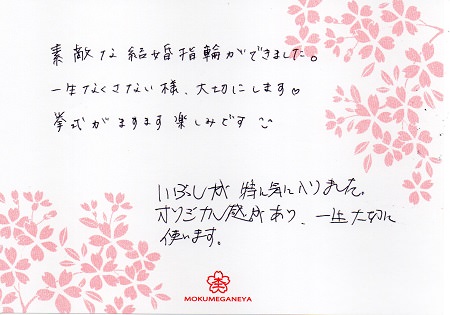 素敵な結婚指輪ができました。
一生なくさない様、大切にします♡
挙式がますます楽しみです
いぶしが特に気に入りました。
オリジナル感があり、一生大切に
使います。
MOKUMEGANEYA